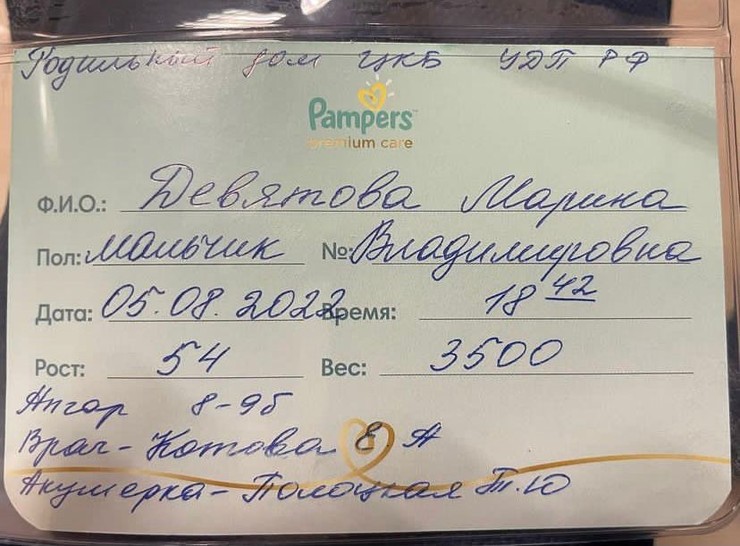 Родильный дом ЦКБ УДП РФ
Pampers
premium care
Ф.И.О.: Девятова Марина
Пол: мальчик №: Владимировна
Дата: 05.08.2022 Время: 18 42
Рост: 54 Вес: 3500
Апгар 8-9б
Врач - Котова Е А
Акушерка - Полоцкая Т.Ю